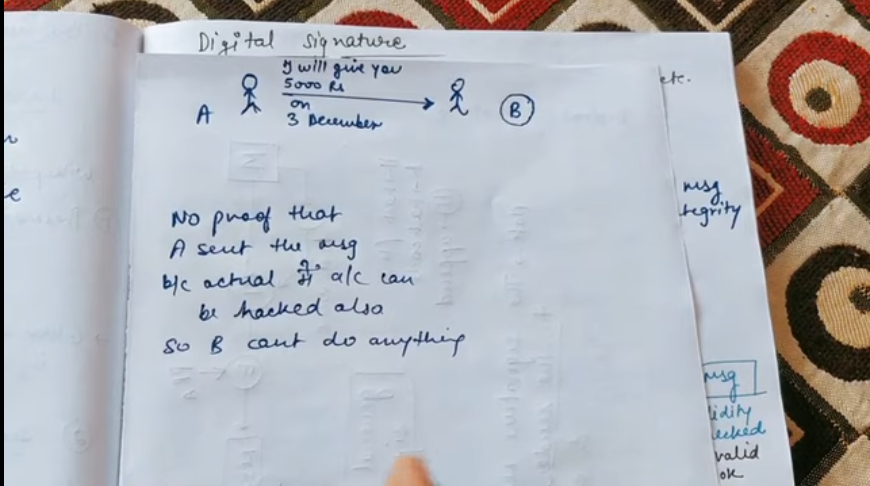 Digital Signature
I will give you
5000 Rs
on
3 December
A
B
No proof that
A sent the msg
b/c actual में a/c can
be hacked also
so B cant do anything
etc.
msg
tegrity
msg
lidity
ecked
valid
ok
e